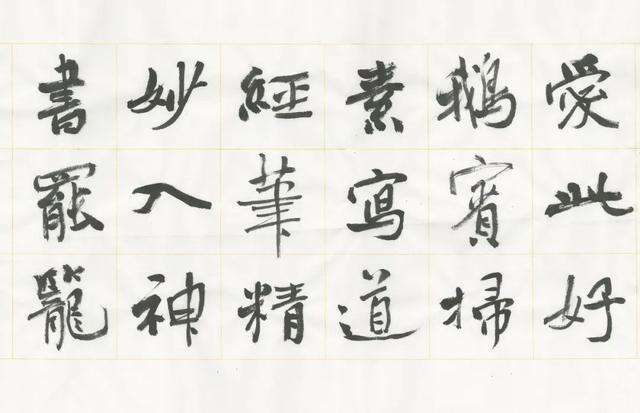 愛此好
鵝賓掃
素寫道
經筆精
妙入神
書罷籠